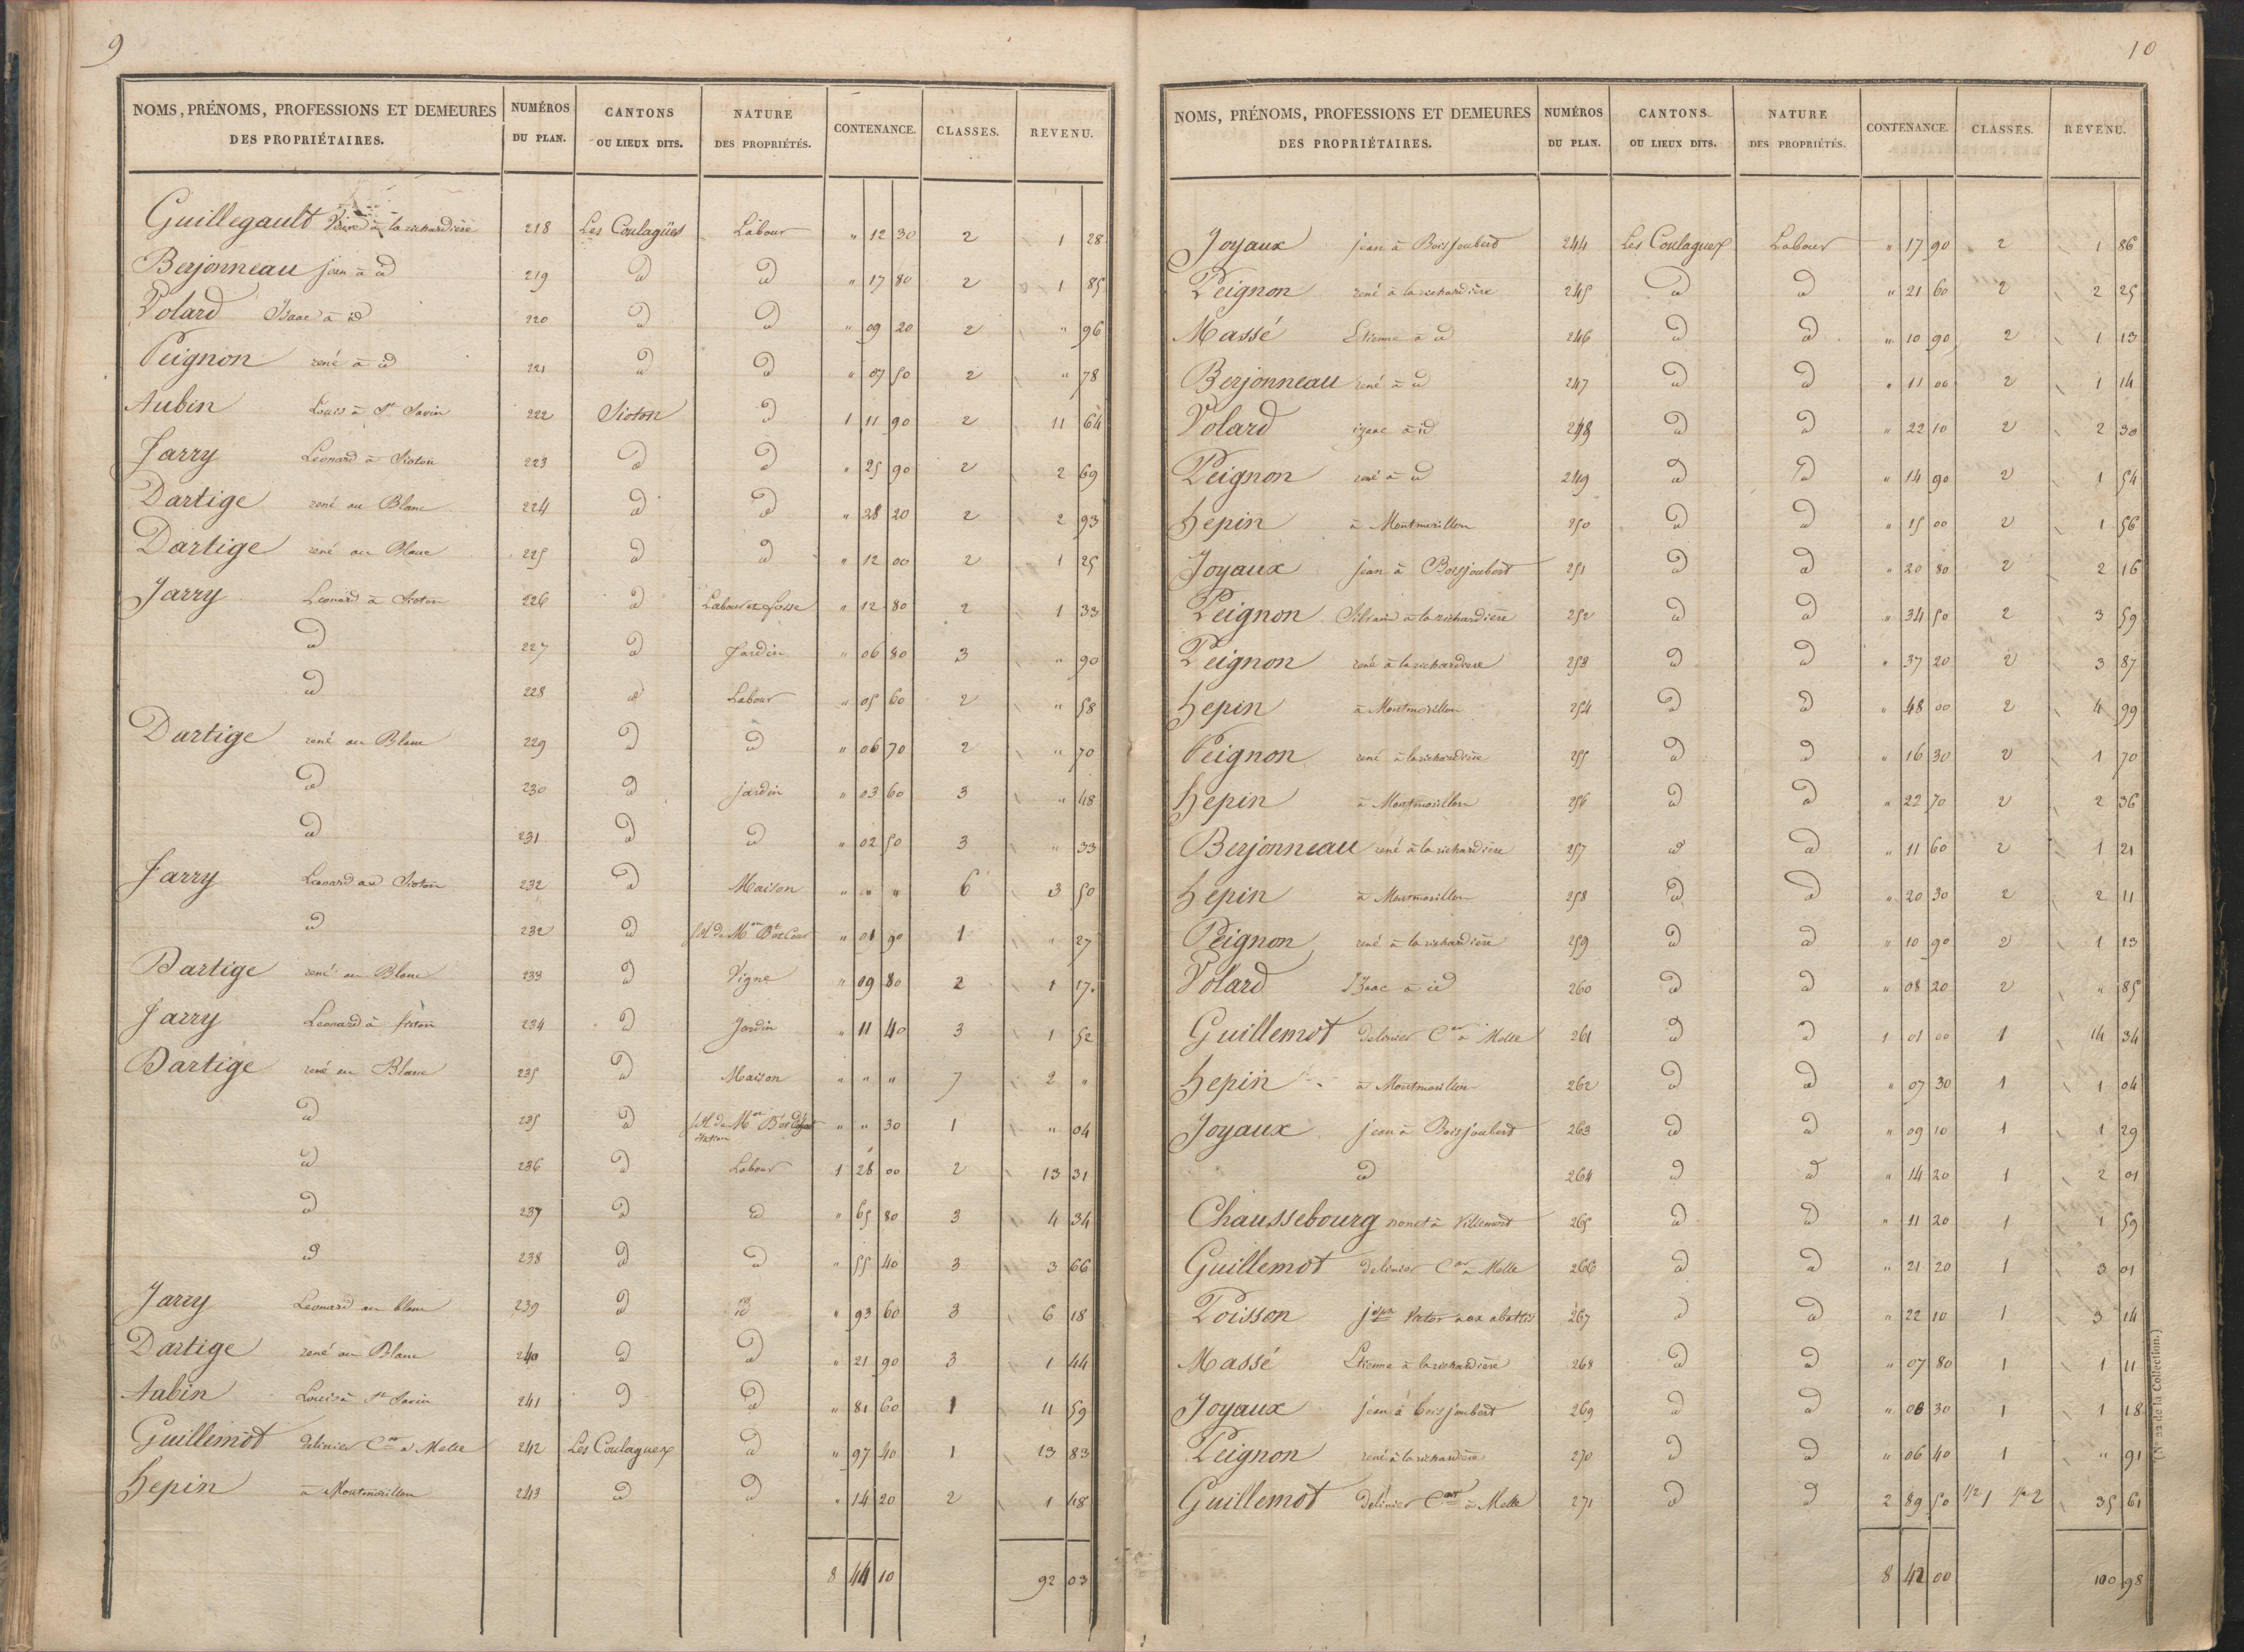 9
NOMS, PRÉNOMS, PROFESSIONS ET DEMEURES DES PROPRIÉTAIRES. NUMÉROS DU PLAN. CANTONS OU LIEUX DITS. NATURE DES PROPRIÉTÉS. CONTENANCE. CLASSES. REVENU.
Guillegault à la richardière 218 Les Coulagües Labour " 12 30 2 1 28
Berjonneau jean à id 219 id id " 17 80 2 1 85
Volard Isaac à id 220 id id " 09 20 2 " 96
Peignon rené à id 221 id id " 07 50 2 " 78
Aubin Louis à St Savin 222 Sioton id 1 11 90 2 11 64
Jarry Leonard à Sioton 223 id id " 25 90 2 2 69
Dartige rené au Blanc 224 id id " 28 20 2 2 93
Dartige rené au Blanc 225 id id " 12 00 2 1 25
Jarry Leonard à Sioton 226 id Labour et fosse " 12 80 2 1 33
id 227 id Jardin " 06 80 3 " 90
id 228 id Labour " 05 60 2 " 58
Dartige rené au Blanc 229 id id " 06 70 2 " 70
id 230 id jardin " 03 60 3 " 48
id 231 id id " 02 50 3 " 33
Jarry Leonard au Sioton 232 id Maison " " " 6 3 50
id 232 id sol de Mon Bt et Cour " 01 90 1 " 27
Dartige rené au Blanc 233 id Vigne " 09 80 2 1 17
Jarry Leonard à Sioton 234 id Jardin " 11 40 3 1 52
Dartige rené au Blanc 235 id Maison " " " 7 2 "
id 235 id sol de Mon Bt et " " 30 1 " 04
id 236 id Labour 1 28 00 2 13 31
id 237 id id " 65 80 3 4 34
id 238 id id " 55 40 3 3 66
Jarry Leonard au blanc 239 id id " 93 60 3 6 18
Dartige rené au Blanc 240 id id " 21 90 3 1 44
Aubin Louis à St Savin 241 id id " 81 60 1 11 59
Guillemot delinier Cer à Melle 242 Les Coulagues id " 97 40 1 13 83
hepin à Montmorillon 243 id id " 14 20 2 1 48
8 44 10 92 03
10
NOMS, PRÉNOMS, PROFESSIONS ET DEMEURES DES PROPRIÉTAIRES. NUMÉROS DU PLAN. CANTONS OU LIEUX DITS. NATURE DES PROPRIÉTÉS. CONTENANCE. CLASSES. REVENU.
Joyaux jean à Boisjoubert 244 Les Coulagues Labour " 17 90 2 1 86
Peignon rené à la richardière 245 id id " 21 60 2 2 25
Massé Etienne à id 246 id id " 10 90 2 1 13
Berjonneau rené à id 247 id id " 11 00 2 1 14
Volard izaac à id 248 id id " 22 10 2 2 30
Peignon rené à id 249 id id " 14 90 2 1 54
hepin à Montmorillon 250 id id " 15 00 2 1 56
Joyaux jean à Boisjoubert 251 id id " 20 80 2 2 16
Peignon Silvain à la richardière 252 id id " 34 50 2 3 59
Peignon rené à la richardiere 253 id id " 37 20 2 3 87
hepin à Montmorillon 254 id id " 48 00 2 4 99
Peignon rené à la richardière 255 id id " 16 30 2 1 70
hepin à Montmorillon 256 id id " 22 70 2 2 36
Berjonneau rené à la richardière 257 id id " 11 60 2 1 21
hepin à Montmorillon 258 id id " 20 30 2 2 11
Peignon rené à la richardière 259 id id " 10 90 2 1 13
Volard Izaac à id 260 id id " 08 20 2 " 85
Guillemot delinier Cer à Melle 261 id id 1 01 00 1 14 34
hepin à Montmorillon 262 id id " 07 30 1 1 04
Joyaux jean à Boisjoubert 263 id id " 09 10 1 1 29
id 264 id id " 14 20 1 2 01
Chaussebourg à Villemort 265 id id " 11 20 1 1 59
Guillemot delinier Cer à Melle 266 id id " 21 20 1 3 01
Poisson aux abattis 267 id id " 22 10 1 3 14
Massé Etienne à la richardière 268 id id " 07 80 1 1 11
Joyaux jean à boisjoubert 269 id id " 08 30 1 1 18
Peignon rené à la richardière 270 id id " 06 40 1 " 91
Guillemot delinier Cer à Melle 271 id id 2 89 50 1/2 1 1/2 2 35 61
8 42 00 100 98
(N° 22 de la Collection.)